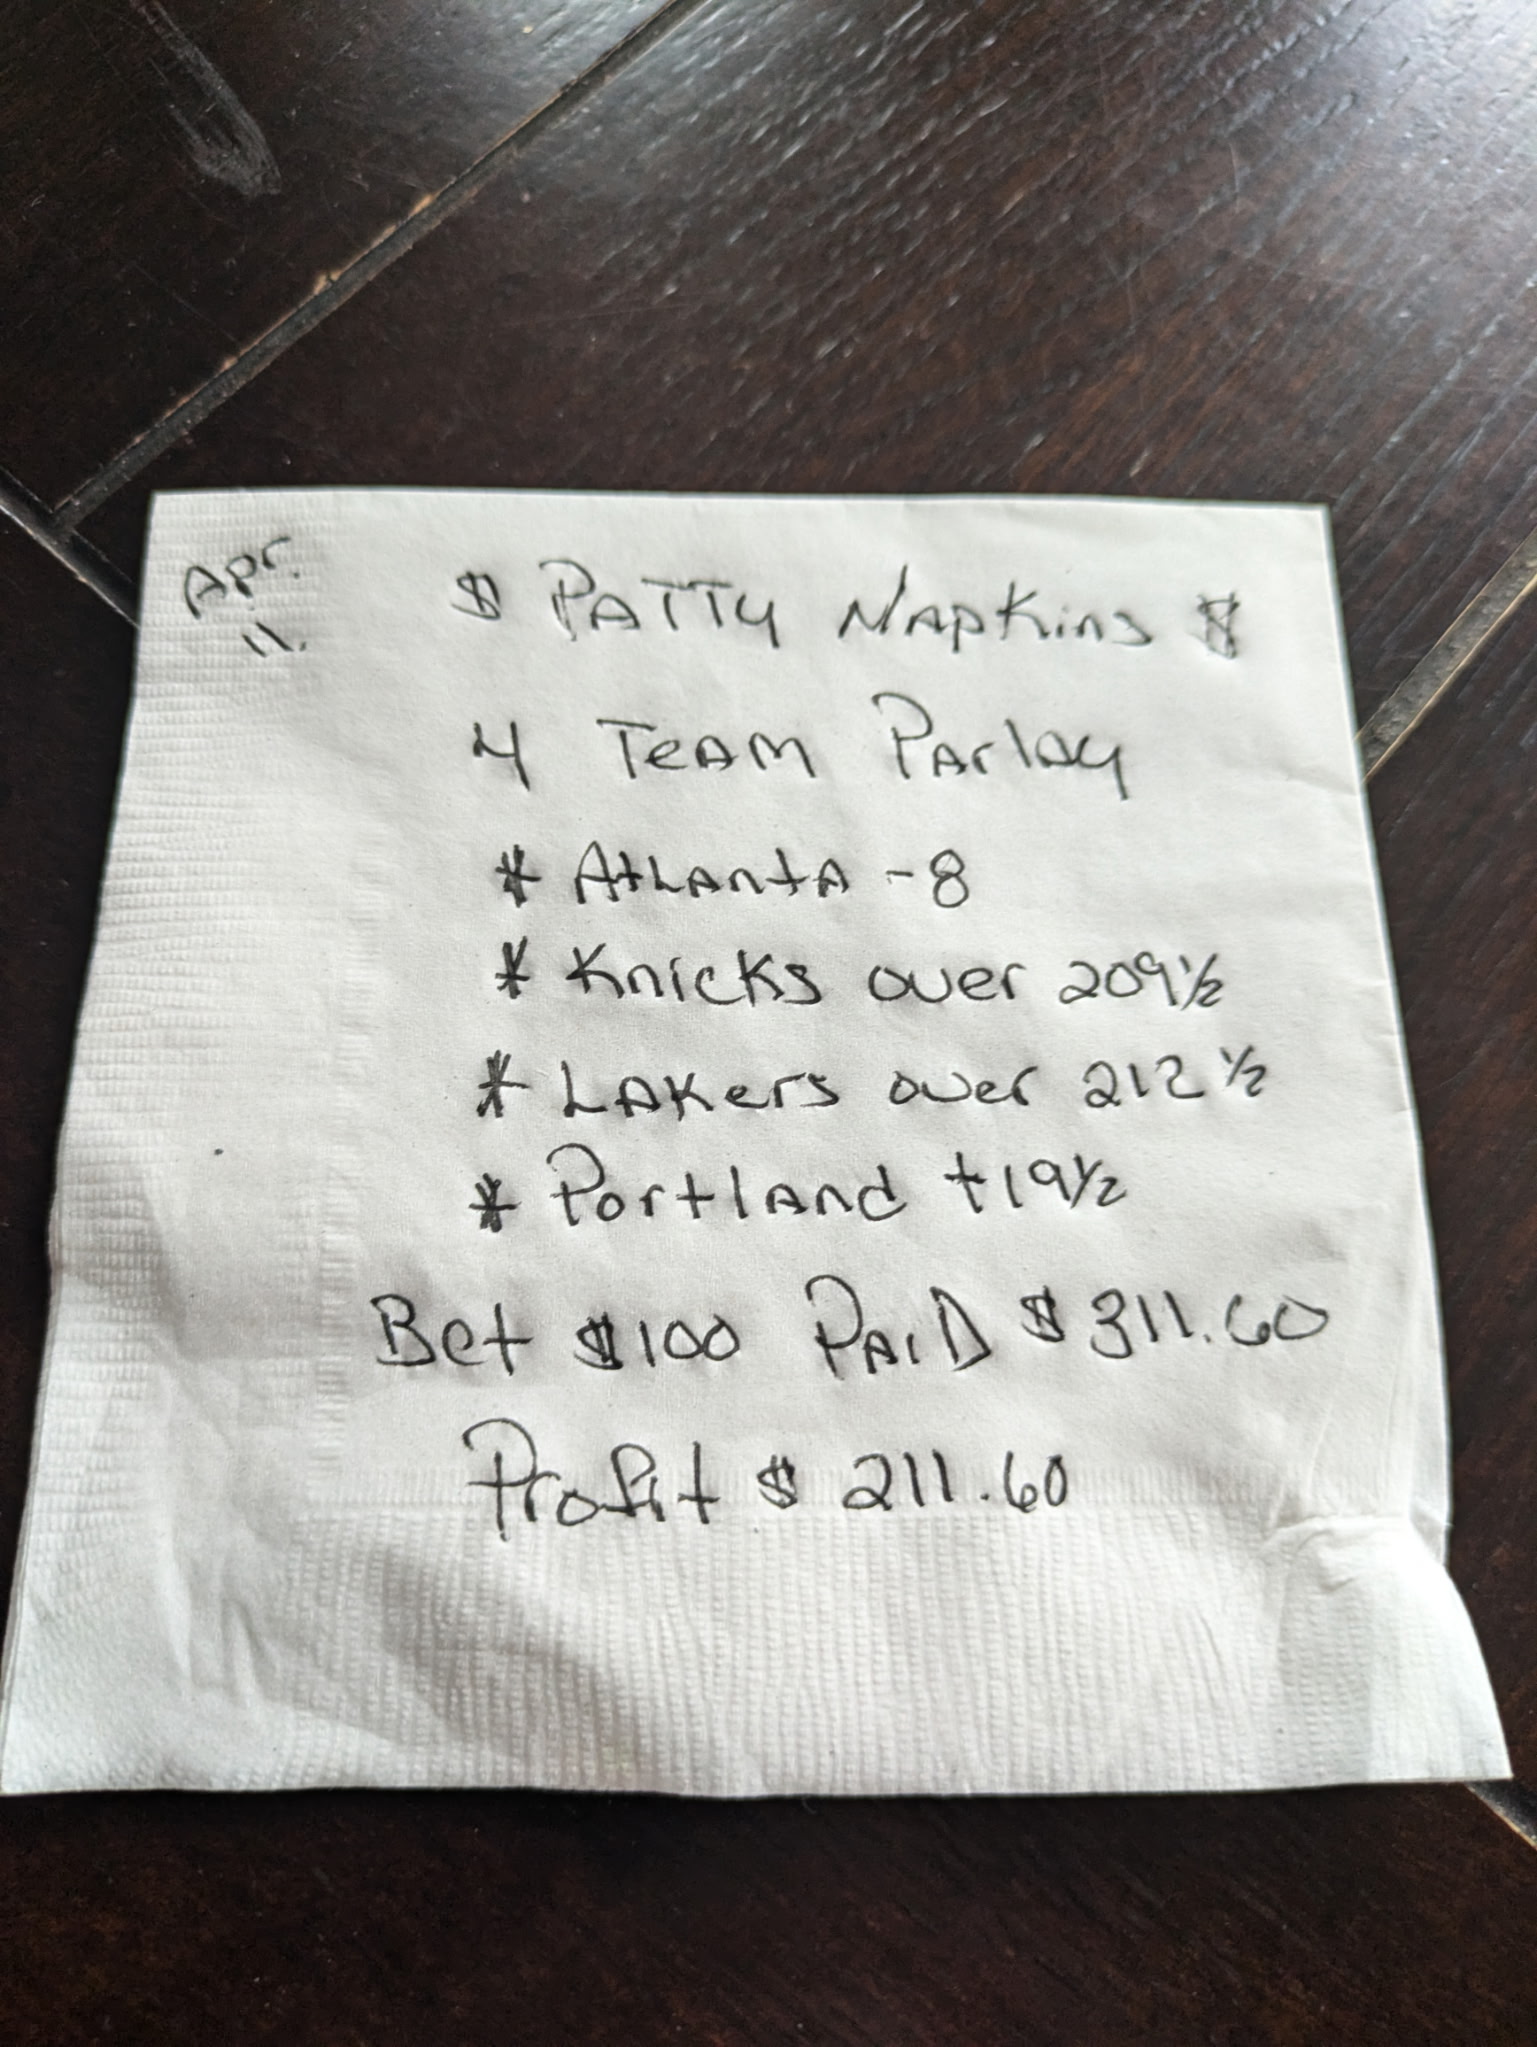 Apr.
11.
$ PATTY NAPKins $
4 TeAM PArlAy
* AtLAntA -8
* Knicks over 209 1/2
* LAKers over 212 1/2
* PortlAnd +19 1/2
Bet $100 PAiD $311.60
Profit $ 211.60